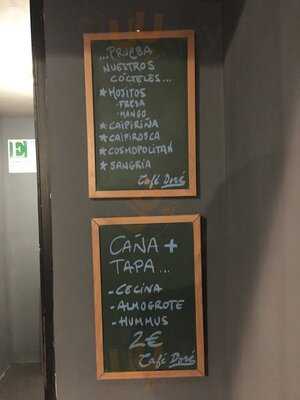 ...PRUEBA
NUESTROS
CÓCTELES...
* MOJITOS
- FRESA
- MANGO
* CAIPIRIÑA
* CAIPIROSCA
* COSMOPOLITAN
* SANGRÍA
Café Doré
CAÑA +
TAPA...
- CECINA
- ALMOGROTE
- HUMMUS
2€
Café Doré
E